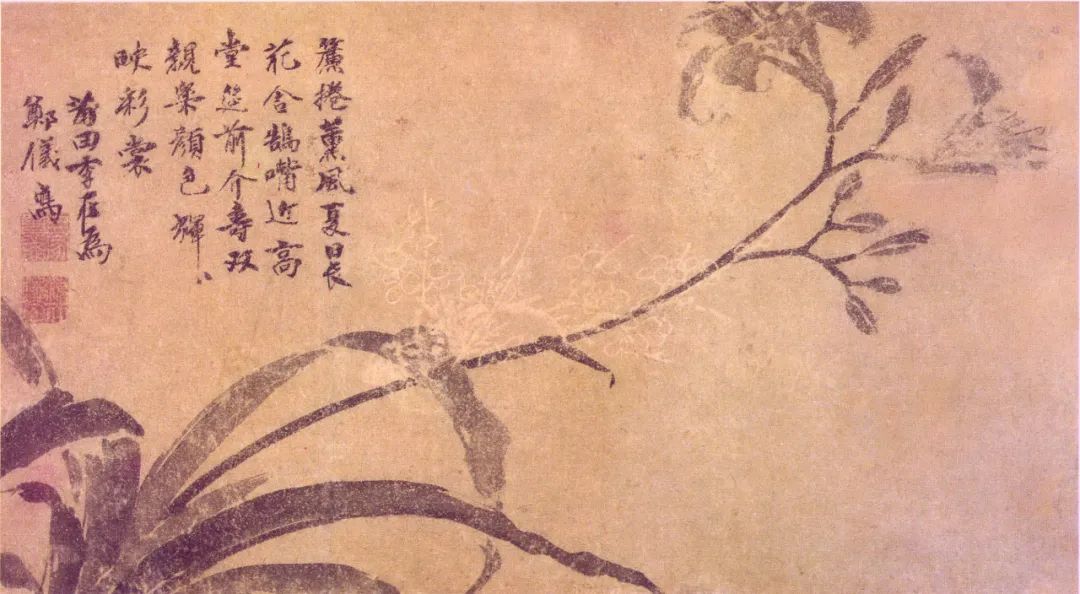 簾捲薰風夏日長
花含鵠嘴近高
堂筵前介壽双
親樂顔色輝、
映彩裳
莆田李在為
鄭儀寫